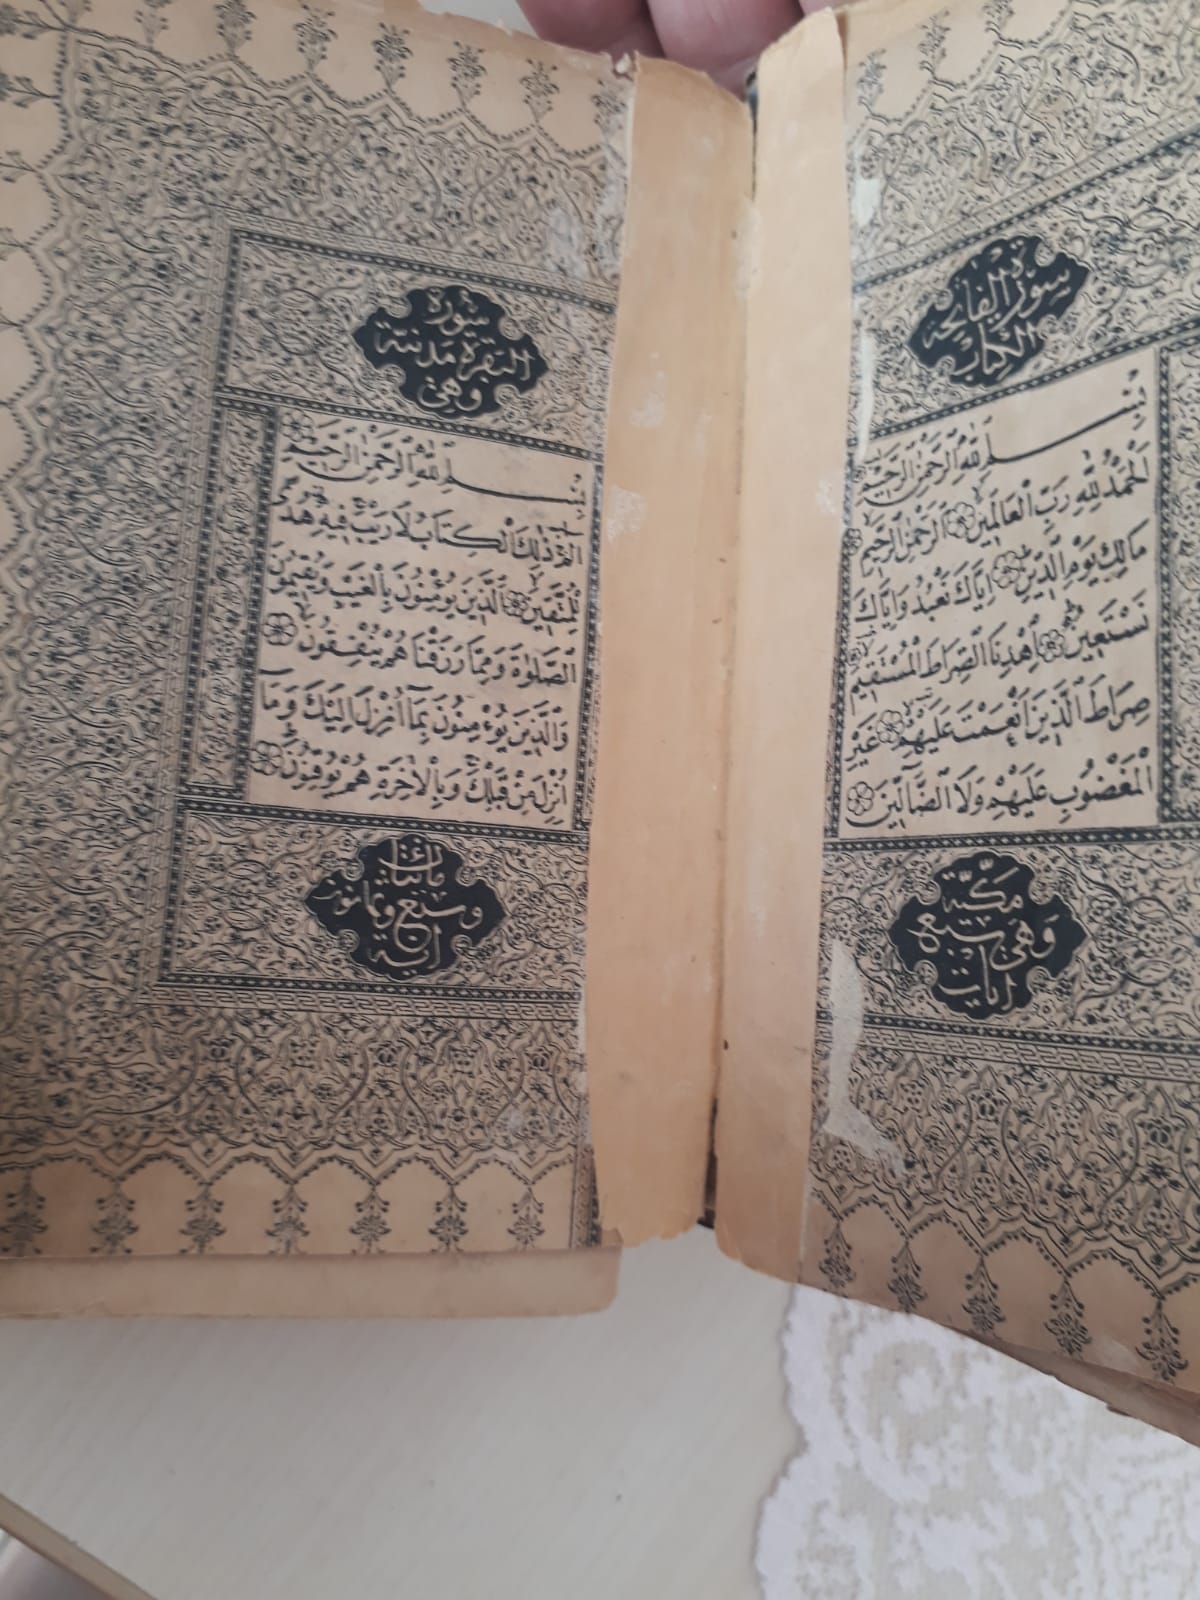 سورة الفاتحة
الكتاب
بِسْمِ اللّٰهِ الرَّحْمٰنِ الرَّحِيمِ
اَلْحَمْدُ لِلّٰهِ رَبِّ الْعَالَمِينَ اَلرَّحْمٰنِ الرَّحِيمِ
مَالِكِ يَوْمِ الدِّينِ اِيَّاكَ نَعْبُدُ وَاِيَّاكَ
نَسْتَعِينُ اِهْدِنَا الصِّرَاطَ الْمُسْتَقِيمَ
صِرَاطَ الَّذِينَ اَنْعَمْتَ عَلَيْهِمْ غَيْرِ
الْمَغْضُوبِ عَلَيْهِمْ وَلَا الضَّالِّينَ
مَكّيّة
وَهي سبع
ايات
سورة
البقرة مدنية
وهي
بِسْمِ اللّٰهِ الرَّحْمٰنِ الرَّحِيمِ
الٓمٓ ذٰلِكَ الْكِتَابُ لَا رَيْبَ فِيهِ هُدًى
لِلْمُتَّقِينَ اَلَّذِينَ يُؤْمِنُونَ بِالْغَيْبِ وَيُقِيمُونَ
الصَّلٰوةَ وَمِمَّا رَزَقْنَاهُمْ يُنْفِقُونَ
وَالَّذِينَ يُؤْمِنُونَ بِمَٓا اُنْزِلَ اِلَيْكَ وَمَٓا
اُنْزِلَ مِنْ قَبْلِكَ وَبِالْاٰخِرَةِ هُمْ يُوقِنُونَ
مائتان
وسبع وثمانون
آية